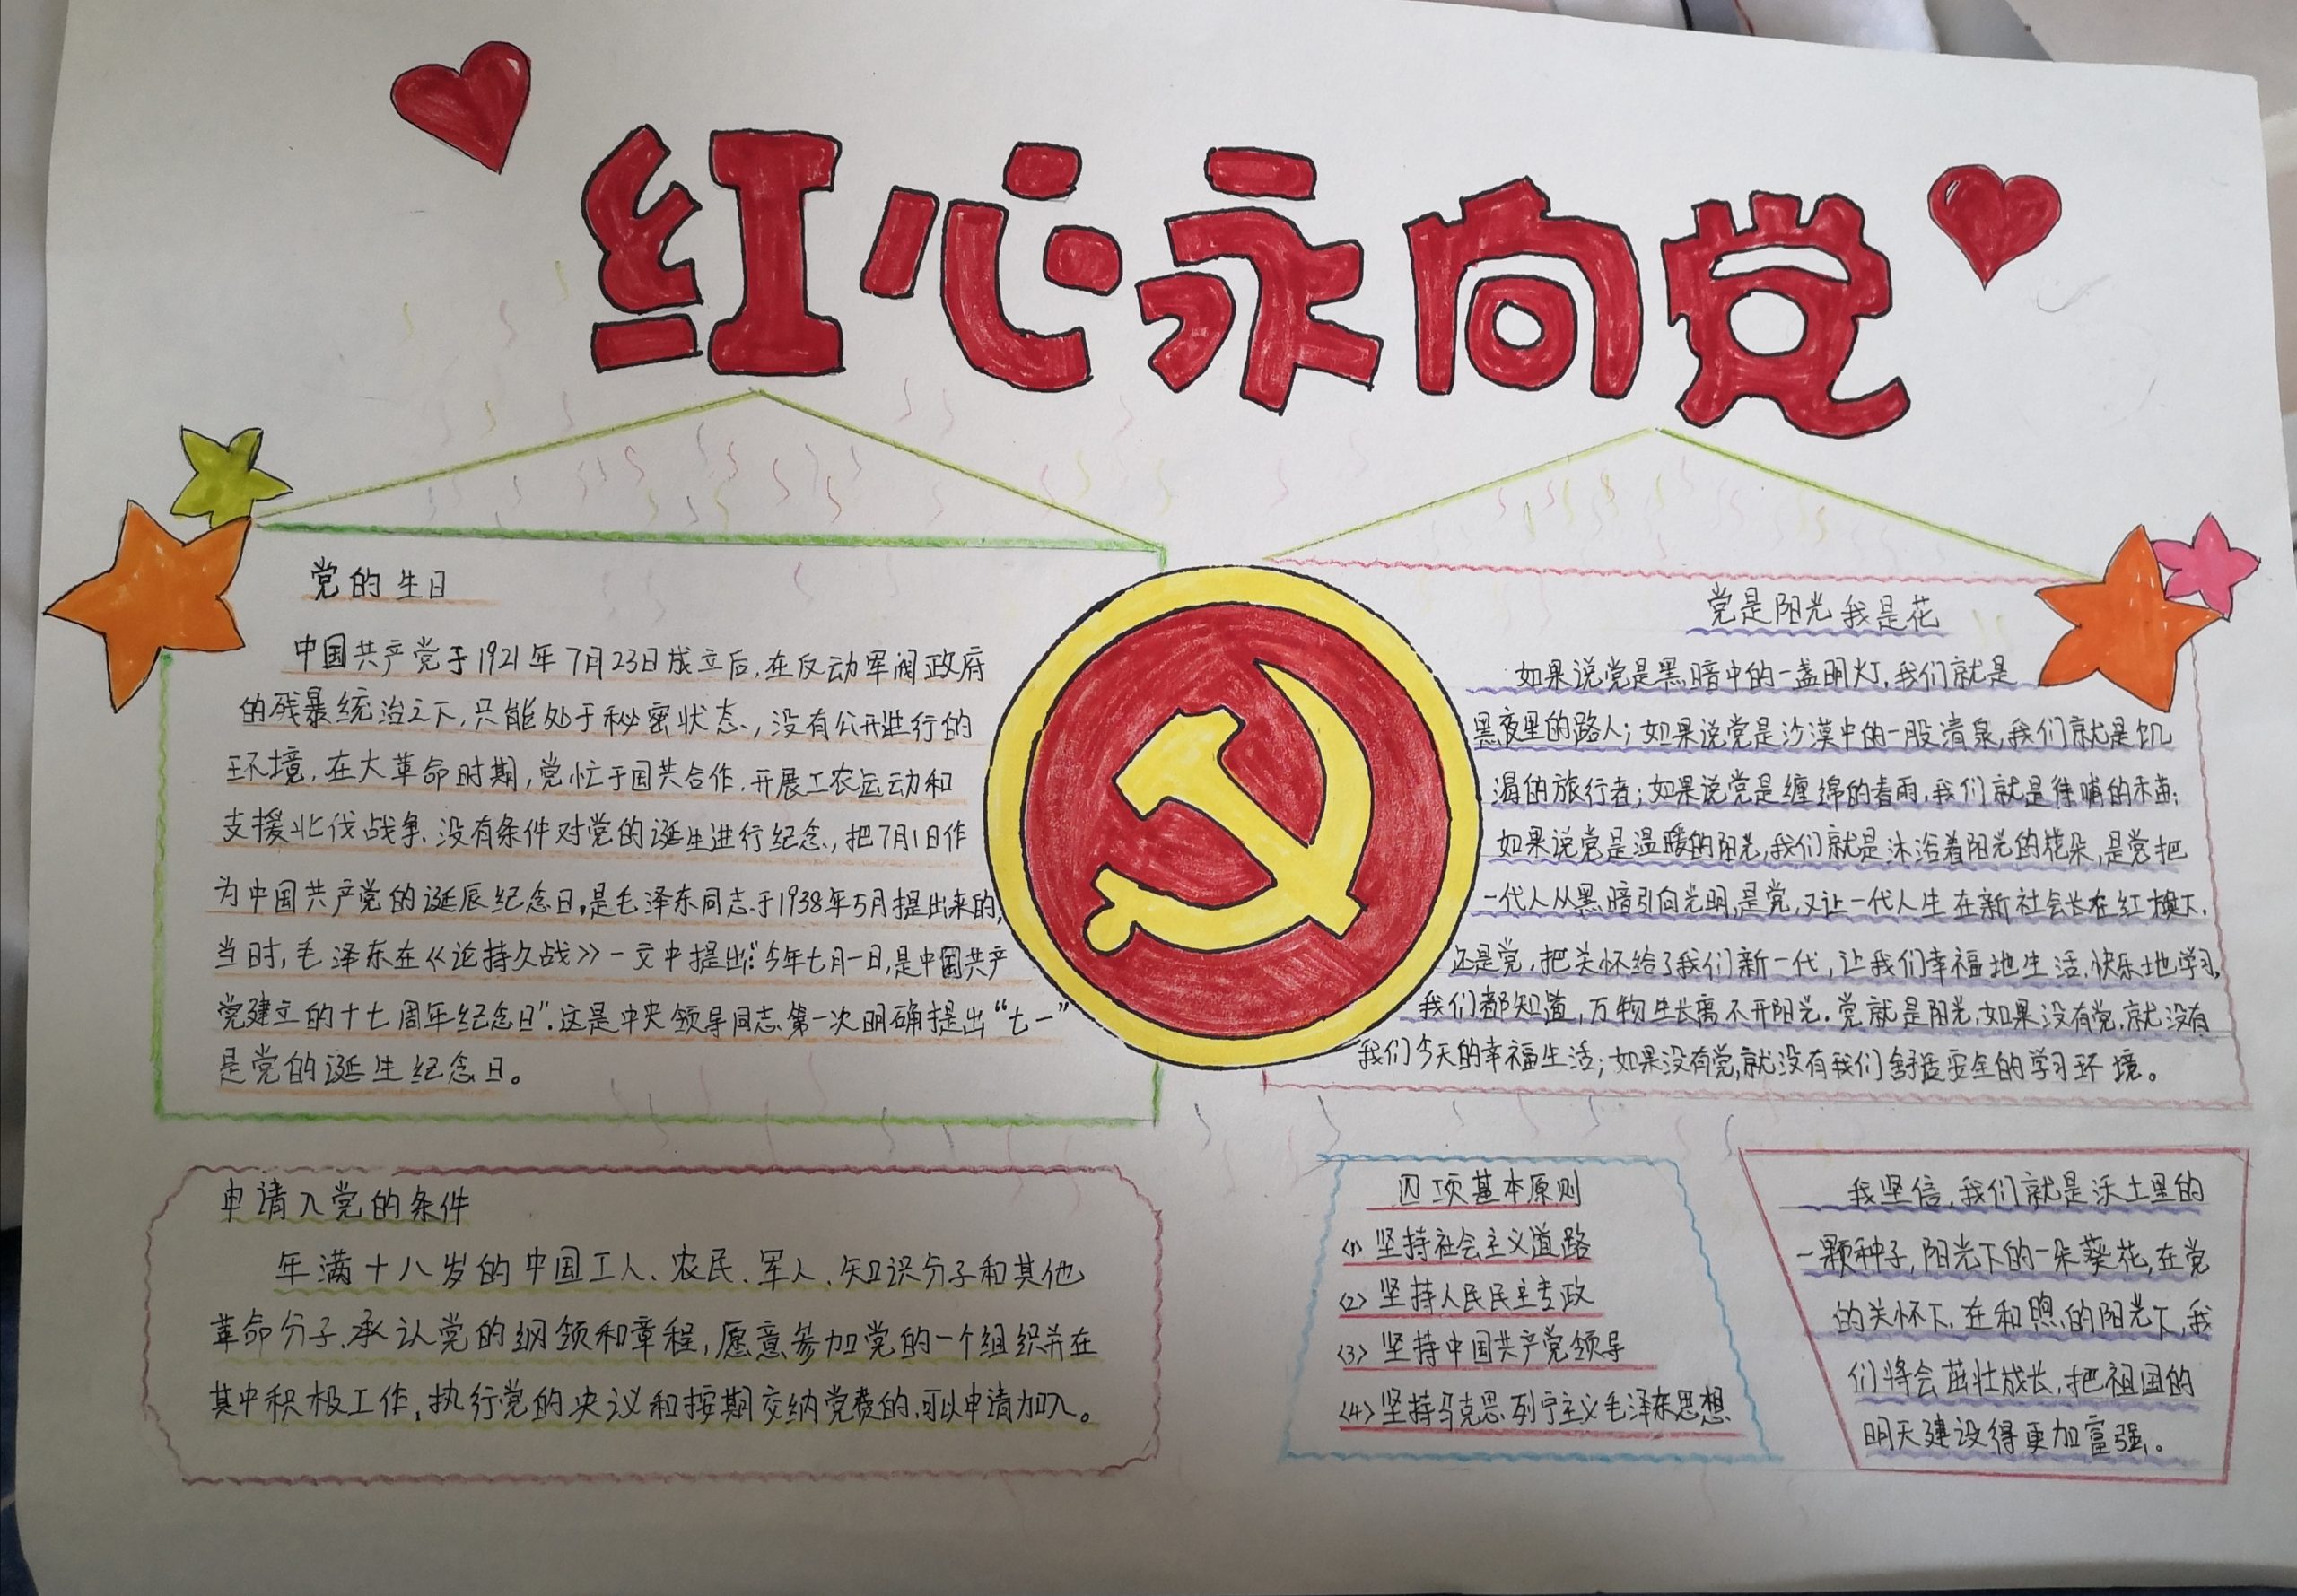 红心永向党
党的生日
中国共产党于1921年7月23日成立后,在反动军阀政府
的残暴统治之下,只能处于秘密状态,没有公开进行的
环境.在大革命时期,党忙于国共合作.开展工农运动和
支援北伐战争.没有条件对党的诞生进行纪念,把7月1日作
为中国共产党的诞辰纪念日,是毛泽东同志于1938年5月提出来的,
当时,毛泽东在《论持久战》一文中提出:“今年七月一日,是中国共产
党建立的十七周年纪念日”.这是中央领导同志第一次明确提出“七一”
是党的诞生纪念日。
党是阳光我是花
如果说党是黑暗中的一盏明灯,我们就是
黑夜里的路人;如果说党是沙漠中的一股清泉,我们就是饥
渴的旅行者;如果说党是缠绵的春雨,我们就是待哺的禾苗;
如果说党是温暖的阳光,我们就是沐浴着阳光的花朵,是党把
一代人从黑暗引向光明,是党,又让一代人生在新社会长在红旗下.
还是党,把关怀给了我们新一代,让我们幸福地生活,快乐地学习,
我们都知道,万物生长离不开阳光.党就是阳光,如果没有党,就没有
我们今天的幸福生活;如果没有党,就没有我们舒适安全的学习环境。
申请入党的条件
年满十八岁的中国工人、农民、军人、知识分子和其他
革命分子.承认党的纲领和章程,愿意参加党的一个组织并在
其中积极工作,执行党的决议和按期交纳党费的,可以申请加入。
四项基本原则
<1>坚持社会主义道路
<2>坚持人民民主专政
<3>坚持中国共产党领导
<4>坚持马克思列宁主义毛泽东思想
我坚信,我们就是沃土里的
一颗种子,阳光下的一朵葵花,在党
的关怀下.在和煦的阳光下,我
们将会茁壮成长.把祖国的
明天建设得更加富强。